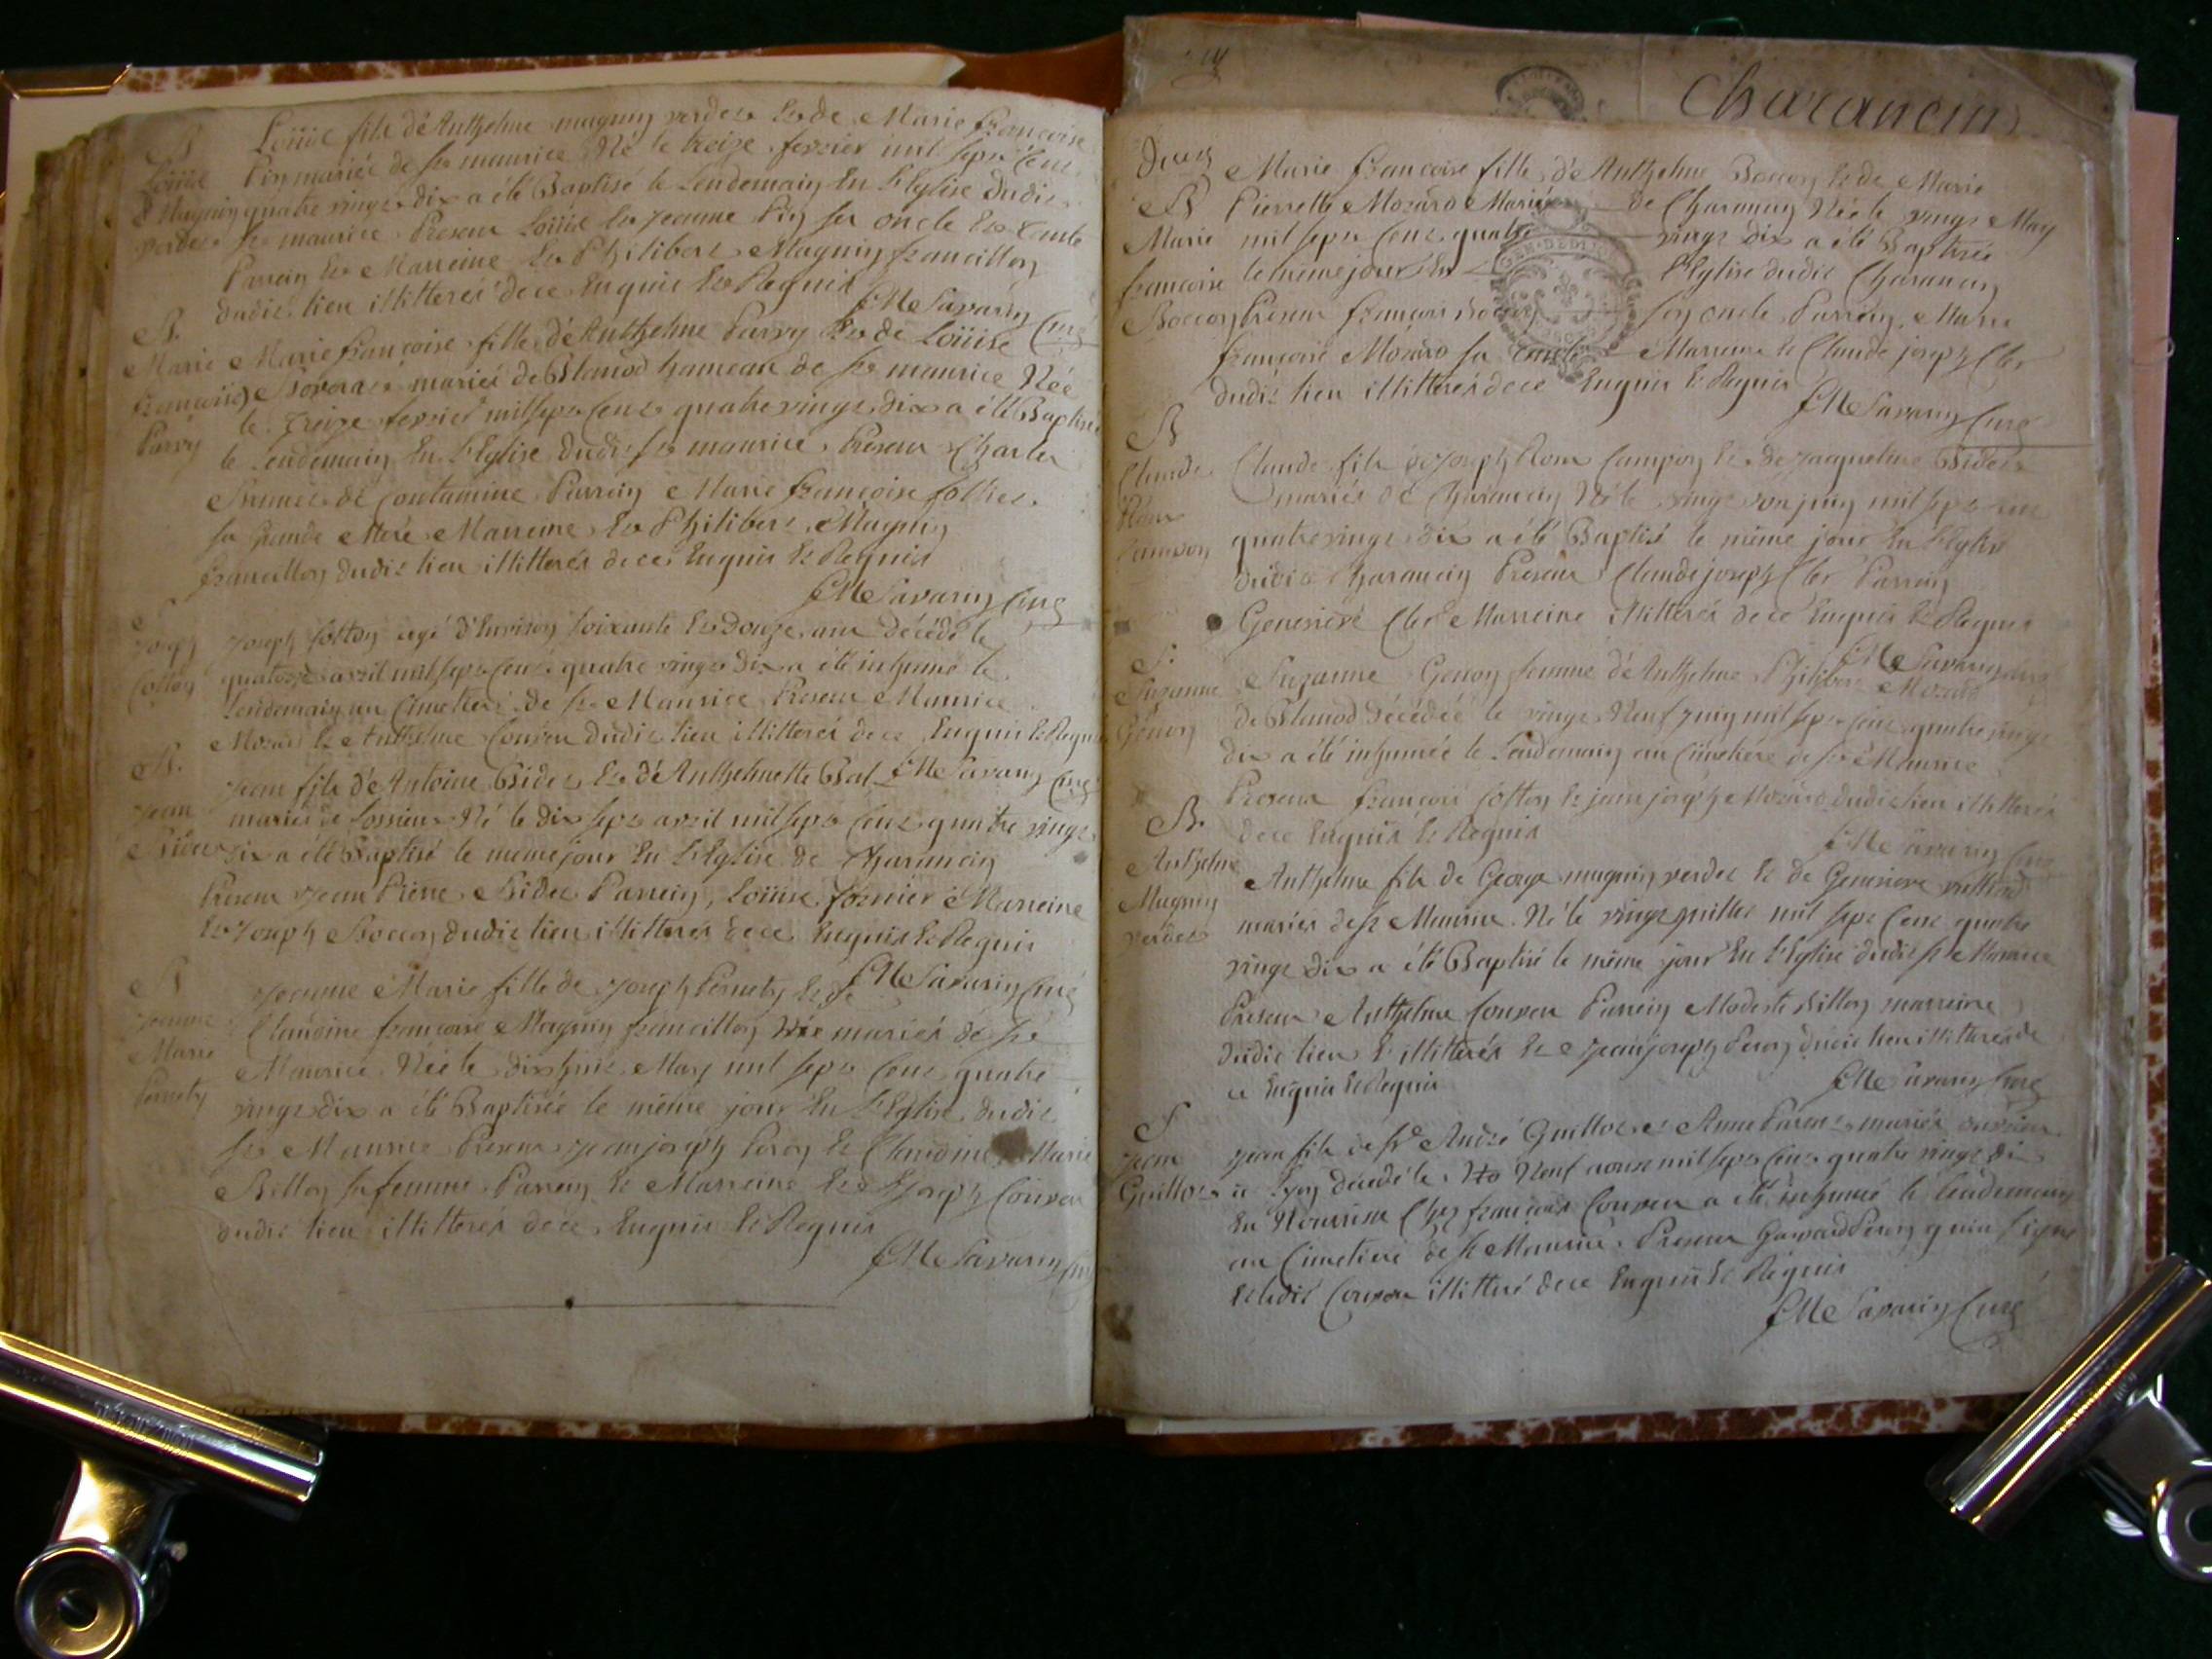 B Loüis fils d'Anthelme magnin verdet Et de Marie françoise
Loüis Pin mariés de st maurice Né le treize fevrier mil sept Cent
Magnin quatre vingt dix a été Baptisé le Lendemain En L'Eglise dudit
verdet st maurice Presens Loüis Et Jeanne Pin ses oncle Et tante
Parrein Et Marreine Et Philibert Magnin francillon
dudit lieu illitterés de ce Enquis Et Requis
JM Savarin Curé
B.
Marie Marie françoise fille d'Anthelme Parry Et de Loüise
françoise mariés de Blanod hameau de st maurice Née
le treize fevrier mil sept Cent quatre vingt dix a été Baptisée
Parry le Lendemain En L'Eglise dudit st maurice Presens Charles
Brunet de Contamine Parrein Marie françoise
sa Grande Mere Marreine Et Philibert Magnin
francillon dudit lieu illitterés de ce Enquis Et Requis
JM Savarin Curé
S
Joseph Joseph Cotton agé d'Environ soixante Et douze ans décédé le
Cotton quatorze avril mil sept Cent quatre vingt dix a été inhumé le
Lendemain au Cimetiere de st Maurice Presens Maurice
Mozard Et Anthelme Convers dudit lieu illitterés de ce Enquis Et Requis
JM Savarin Curé
B.
Jean Jean fils d'Antoine Bidet Et d'Anthelmette Bal
mariés de Lossieu Né le dix sept avril mil sept Cent quatre vingt
Bidet dix a été Baptisé le meme jour En L'Eglise de Charancin
Presens Jean Pierre Bidet Parrein, Loüise fornier Marreine
Et Joseph Boccon dudit lieu illitterés de ce Enquis Et Requis
JM Savarin Curé
B
Jeanne Jeanne Marie fille de Joseph Pernety Et de
Marie Claudine françoise Magnin francillon mariés de st
Pernety Maurice Née le dix huit May mil sept Cent quatre
vingt dix a été Baptisée le même jour En L'Eglise dudit
st Maurice Presens Jean joseph Peron Et Claudine Marie
Billon sa femme Parrein Et Marreine Et Joseph Convers
dudit lieu illitterés de ce Enquis Et Requis
JM Savarin Curé
Charancin
Marie françoise fille d'Anthelme Boccon Et de Marie
B Pierrette Mozard Mariés de Charancin Née le vingt May
Marie mil sept Cent quatre vingt dix a été Baptisée
françoise le même jour En L'Eglise dudit Charancin
Boccon Presens françois Boccon son oncle Parrein, Marie
françoise Mozard sa tante Marreine Et Claude joseph Cler
dudit lieu illitterés de ce Enquis Et Requis
JM Savarin Curé
B
Claude Claude fils de Joseph Rom Campon Et de Jaqueline Bidet
Rom mariés de Charancin Né le vingt juin mil sept cent
Campon quatre vingt dix a été Baptisé le même jour En L'Eglise
dudit Charancin Presens Claude joseph Cler Parrein
Genevieve Cler Marreine illitterés de ce Enquis Et Requis
JM Savarin Curé
S.
Suzanne Suzanne Genon femme d'Anthelme Philibert Mozard
Genon de Blanod décédée le vingt Neuf juin mil sept Cent quatre vingt
dix a été inhumée le Lendemain au Cimetiére de st Maurice
Presens françois Cotton Et jean joseph Mozard dudit lieu illitterés
de ce Enquis Et Requis
JM Savarin Curé
B.
Anthelme Anthelme fils de George magnin verdet Et de Genevieve
Magnin mariés de st Maurice Né le vingt juillet mil sept Cent quatre
verdet vingt dix a été Baptisé le même jour En L'Eglise dudit st Maurice
Presens Anthelme Convers Parrein Modeste Billon marreine
dudit lieu illitterés Et Jean joseph Peron dudit lieu illitterés de
ce Enquis Et Requis
JM Savarin Curé
S
Jean Jean fils de sr André Guillot et Anne mariés
Guillot a Lyon décédé le Neuf aoust mil sept Cent quatre vingt dix
En Nourrice Chez françois Convers a été inhumé le Lendemain
au Cimetiere de st Maurice. Presens Peron qui a signé
Et ledit Convers illitteré de ce Enquis Et Requis
JM Savarin Curé